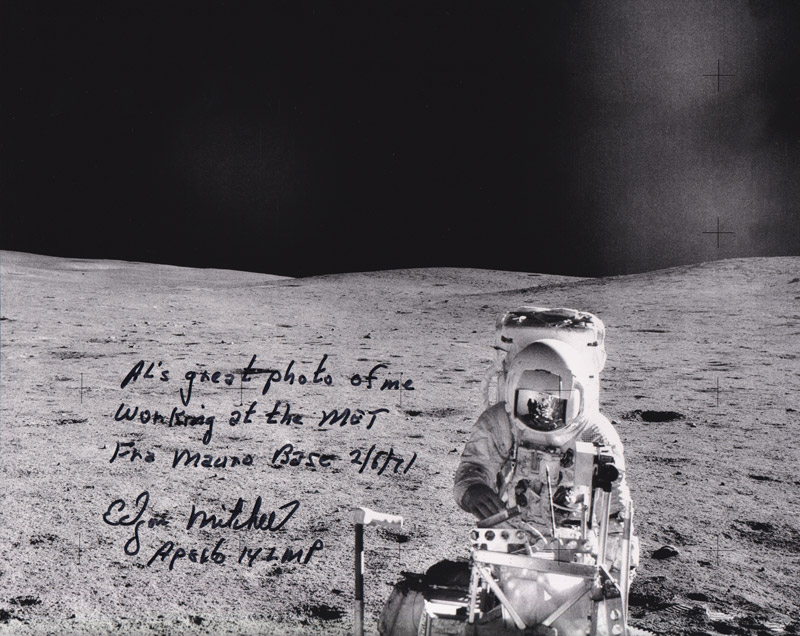 AL's great photo of me
Working at the MET
Fra Mauro Base 2/6/71
Edgar Mitchell
Apollo 14 LMP